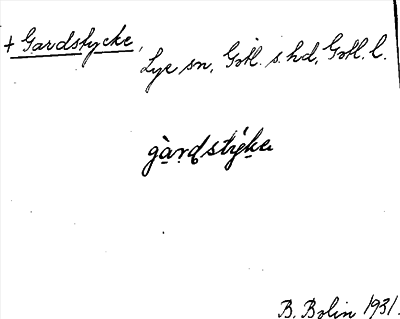 + Gardstycke,
Lye sn, Gotl. s. hd, Gotl. l.
gàrdstýke
B. Bolin 1931.